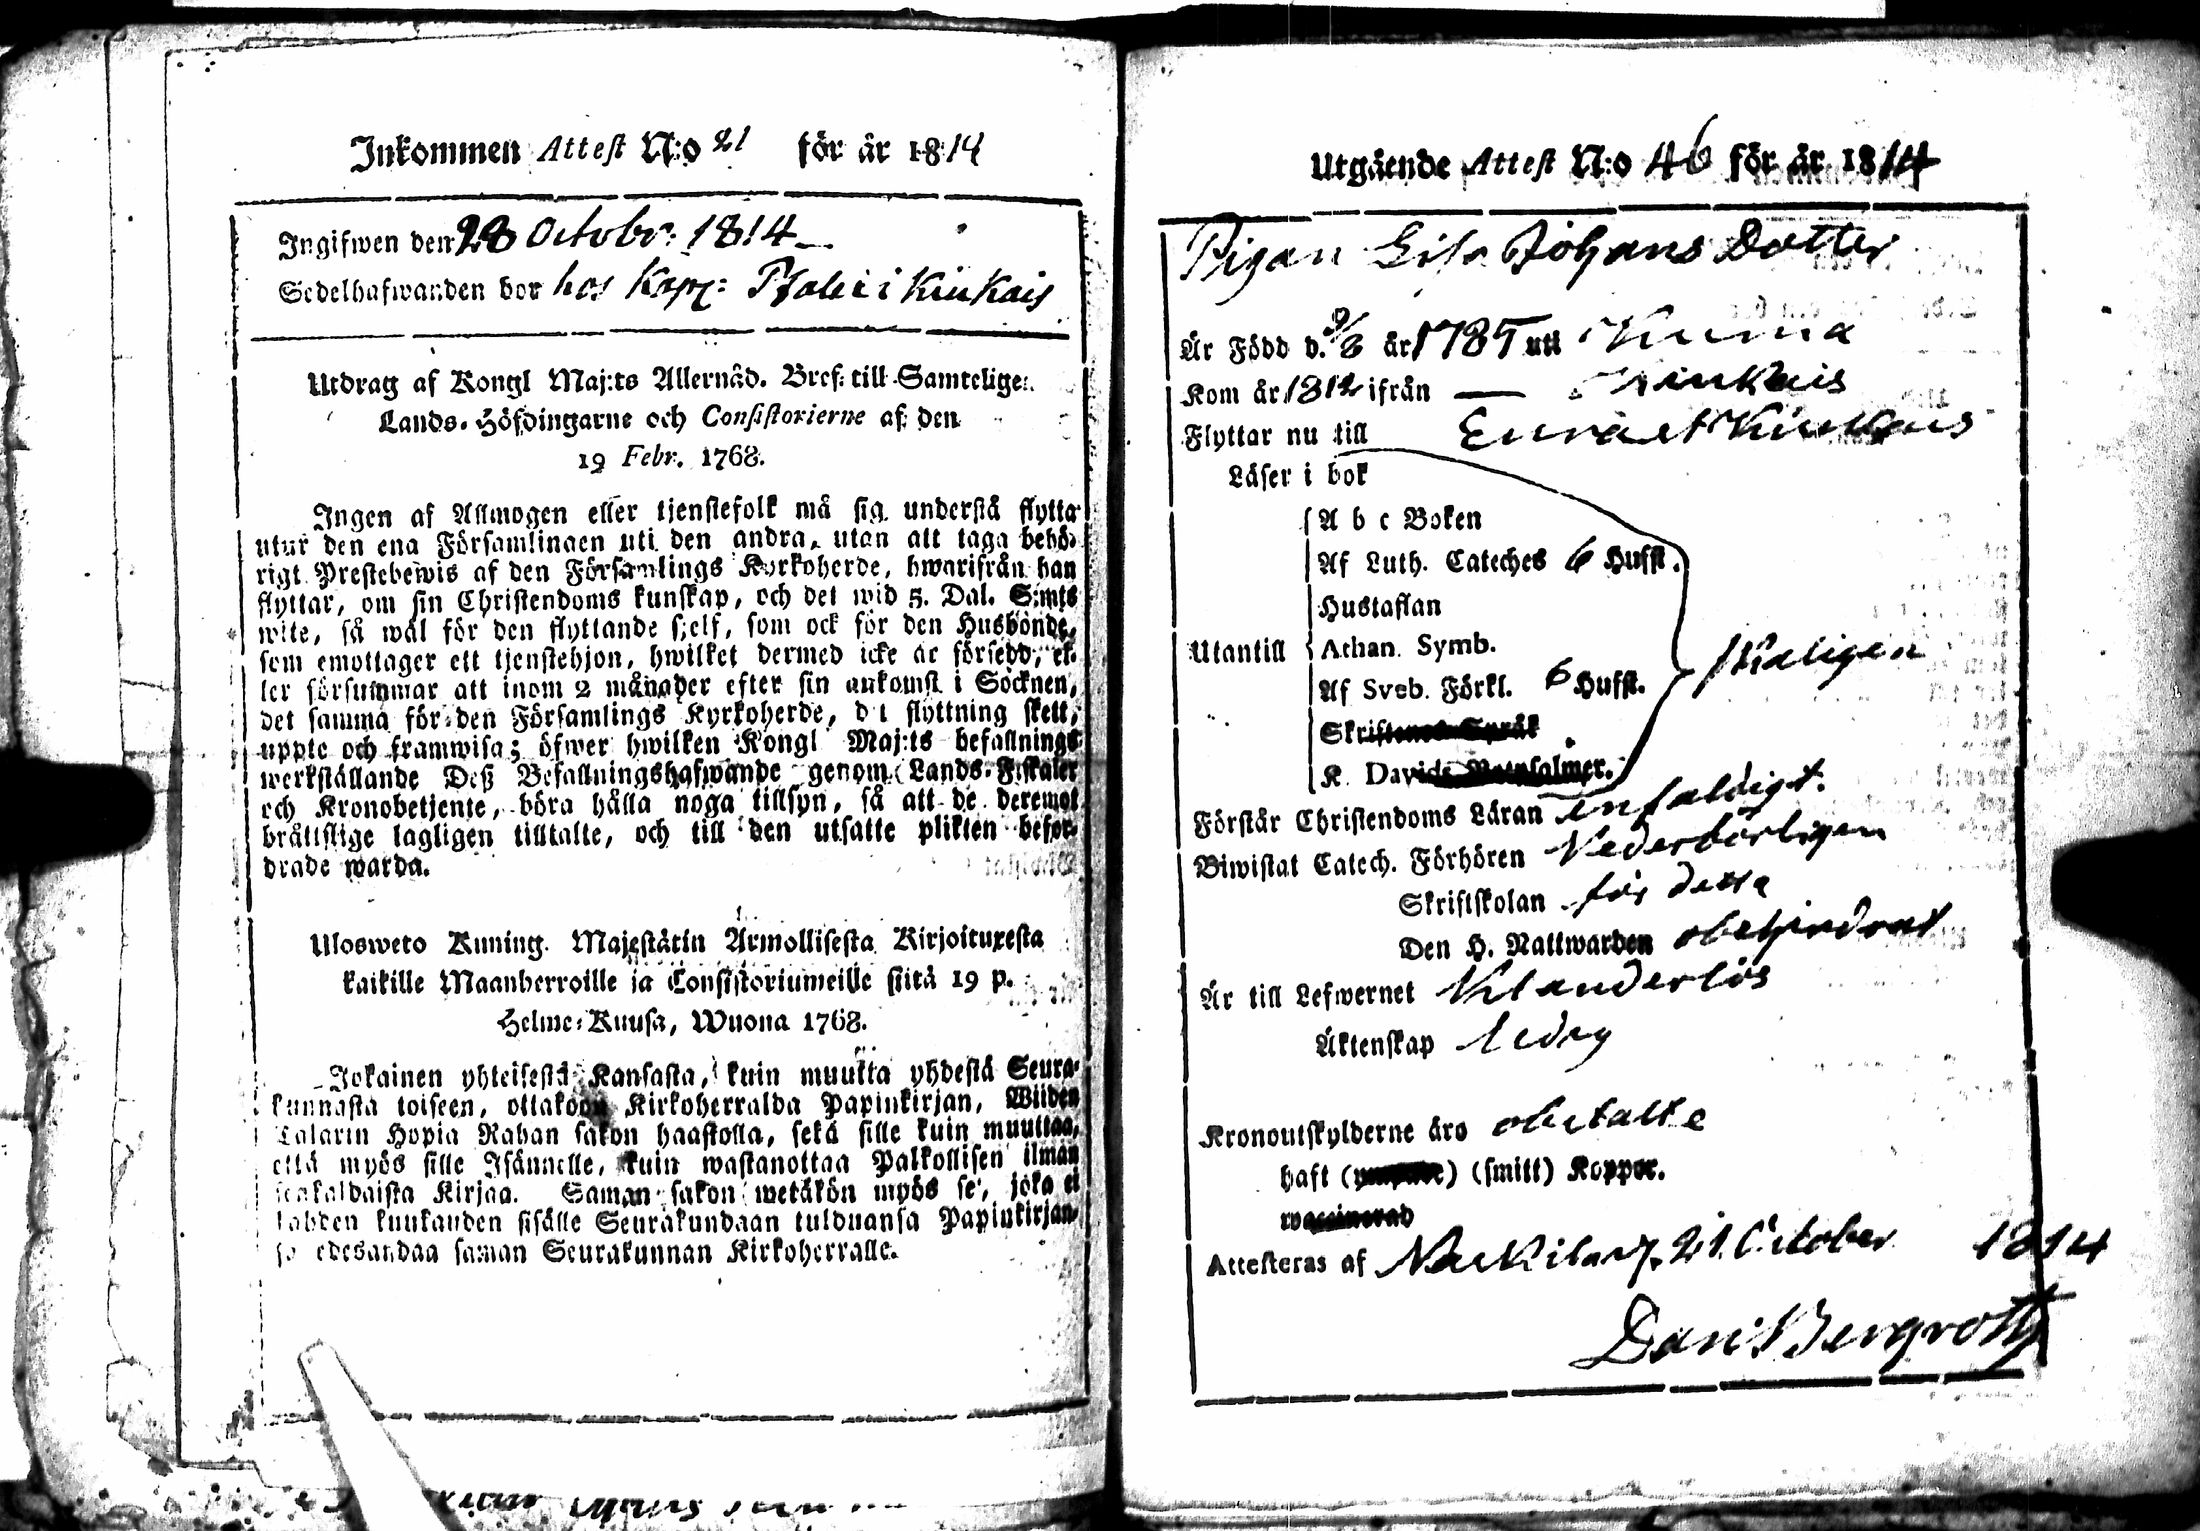 Inkommen Attest N:o 21 för år 1814
Ingifwen den 28 Octobr: 1814
Sedelhafwanden bor hos Kapp: i Kiukais
Utdrag af Kongl Maj:ts Allernåd. Bref till Samtelige
Lands-Höfdingarne och Consistorierne af den
19 Febr. 1768.
Ingen af Allmogen eller tjenstefolk må sig understå flytta
utur den ena Församlingen uti den andra, utan att taga behö-
rigt Prestebewis af den Församlings Kyrkoherde, hwarifrån han
flyttar, om sin Christendoms kunskap, och det wid 5. Dal. S:mts
wite, så wäl för den flyttande sjelf, som ock för den Husbonde,
som emottager ett tjenstehjon, hwilket dermed icke är försedd, el-
ler försummar att inom 2 månader efter sin ankomst i Socknen,
det samma för den Församlings Kyrkoherde, dit flyttning skett,
uppte och framwisa; öfwer hwilken Kongl Maj:ts befallnings
werkställande Deß Befallningshafwande genom Lands-Fiskaler
och Kronobetjente, böra hålla noga tillsyn, så att de deremot
bråttslige lagligen tilltalte, och till den utsatte plikten befor-
drade warda.
Ulosweto Kuning. Majestätin Armollisesta Kirjoituxesta
kaikille Maanherroille ja Consistoriumeille siitä 19 p.
Helme-Kuusa, Wuona 1768.
Jokainen yhteisestä Kansasta, kuin muutta yhdestä Seura-
kunnasta toiseen, ottakoon Kirkoherralda Papinkirjan, Wiiden
Talarin Hopia Rahan sakon haastolla, sekä sille kuin muuttaa,
että myös sille Isännelle, kuin wastanottaa Palkollisen ilman
senkaldaista Kirjaa. Saman sakon wetäkön myös se, joka ei
kahden kuukauden sisälle Seurakundaan tulduansa Papinkirjan-
sa edesandaa saman Seurakunnan Kirkoherralle.
Utgående Attest N:o 46 för år 1814
Pigan Lisa Johans Dotter
Är Född d. 9/8 år 1785 uti Kiuma
Kom år 1812 ifrån — Kiukais
Flyttar nu till Eura et Kiukais
Läser i bok
A b c Boken
Af Luth. Cateches 6 Hufst.
Hustaflan
Utantill Athan. Symb.
Af Sveb. Förkl. 6 Hufst.
Skriftenes Språk
K. Davids Botpsalmer.
Förstår Christendoms Läran enfaldigt.
Biwistat Catech. Förhören Vederbörligen
Skriftskolan för detta
Den H. Nattwarden obehindrat
Är till Lefwernet Klanderlös
Äktenskap ledig
Kronoutskylderne äro obetalte
haft () (smitt) Koppor.
waccinerad
Attesteras af Nackila d. 21 October 1814
Dan: Bergroth